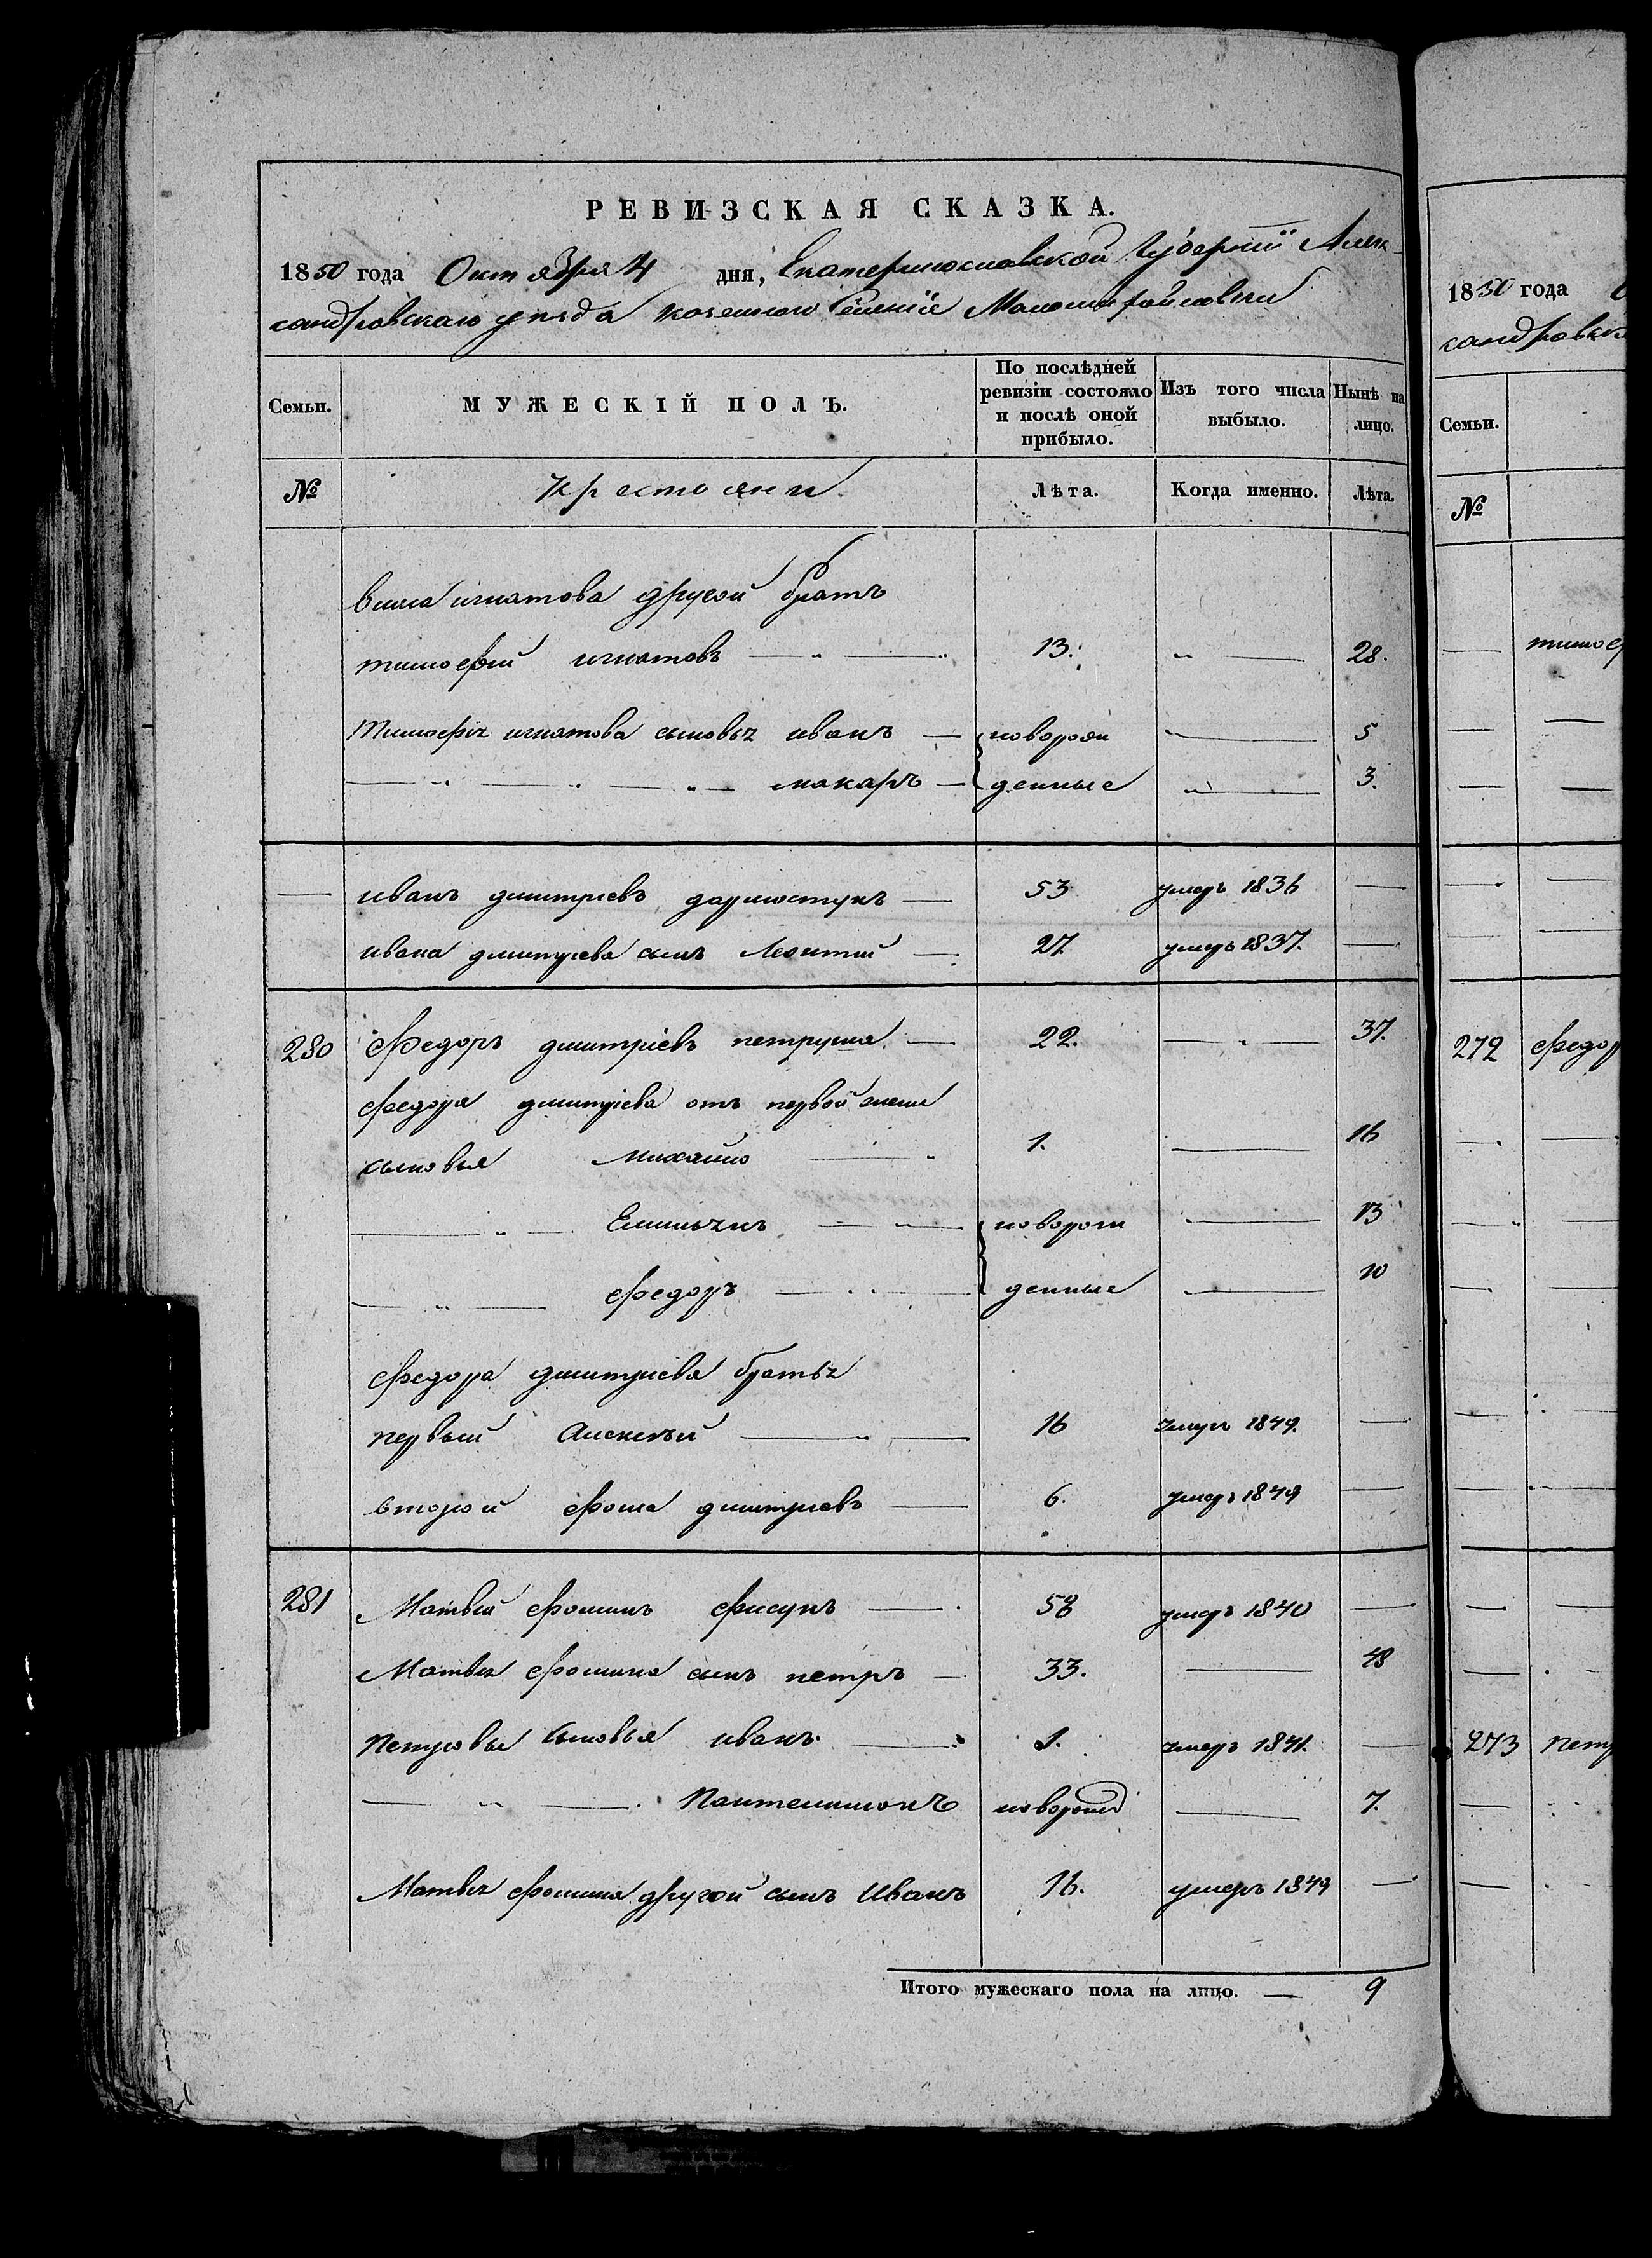 РЕВИЗСКАЯ СКАЗКА.
1850 года Октября 4 дня, Екатеринославской Губернiи Алек-
сандровскаго уезда казенного селенiе Маломихайловки
Семьи. МУЖЕСКІЙ ПОЛЪ. По послѣдней ревизіи состояло и послѣ оной прибыло. Изъ того числа выбыло. Нынѣ на лицо.
№ крестьяни Лѣта. Когда именно. Лѣта.
игнатова другой братъ
тимофей игнатовъ 13. 28.
Тимофея игнатова сыновья иванъ новорож 5
макаръ денные 3.
иванъ дмитриевъ 53 умеръ 1836
ивана дмитриева сынъ Леонтий 27 умеръ 1837.
280 Федоръ дмитріевъ петруша 22. 37.
Федора дмитріева отъ первой жены
сыновья михайло 1. 16
Емельянъ новорож 13
Федоръ денные 10
Федора дмитриева братья
первый Алексей 16 умеръ 1849.
второй Фома дмитриевъ 6. умеръ 1849
281 Матвей Фоминъ Фисунъ 58 умеръ 1840
Матвея Фомина сынъ петръ 33. 48
Петровы сыновья иванъ 1. умеръ 1841.
Пантелимонъ новорожд 7.
Матвея Фомина другой сынъ Иванъ 16. умеръ 1849
Итого мужескаго пола на лицо. 9
1850 года
сандровск
Семьи.
№
тимоф
272 Федор
273 петр